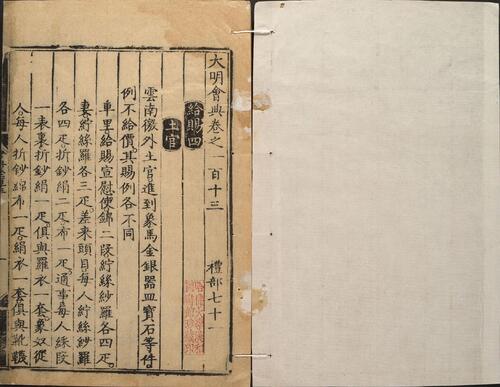 大明會典卷之一百十三 禮部七十一
給賜四
土官
雲南徼外土官進到象馬金銀器皿寶石等件
例不給價其賜例各不同
車里給賜宣慰使錦二段紵絲紗羅各四疋
妻紵絲羅各三疋差來頭目每人紵絲紗羅
各四疋折鈔絹二疋布一疋通事每人綵段
一表裏折鈔絹一疋俱與羅衣一套象奴從
人每人折鈔綿布一疋絹衣一套俱與靴韈